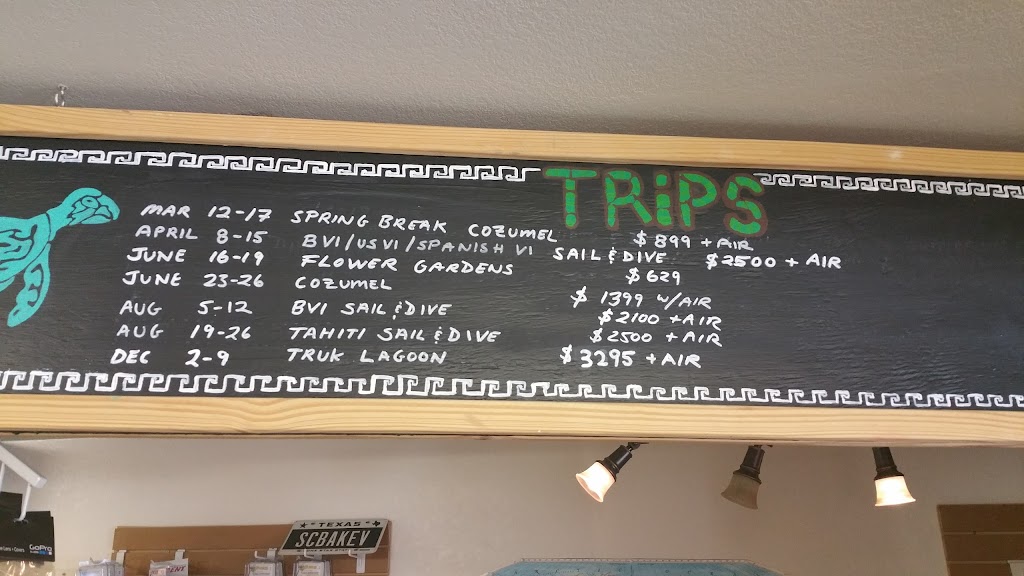 TRiPS
MAR 12-17 SPRING BREAK COZUMEL $899 + AIR
APRIL 8-15 BVI/USVI/SPANISH VI SAIL & DIVE $2500 + AIR
JUNE 16-19 FLOWER GARDENS $629
JUNE 23-26 COZUMEL $1399 W/AIR
AUG 5-12 BVI SAIL & DIVE $2100 + AIR
AUG 19-26 TAHITI SAIL & DIVE $2500 + AIR
DEC 2-9 TRUK LAGOON $3295 + AIR
TEXAS
SCBAKEV
GoPro